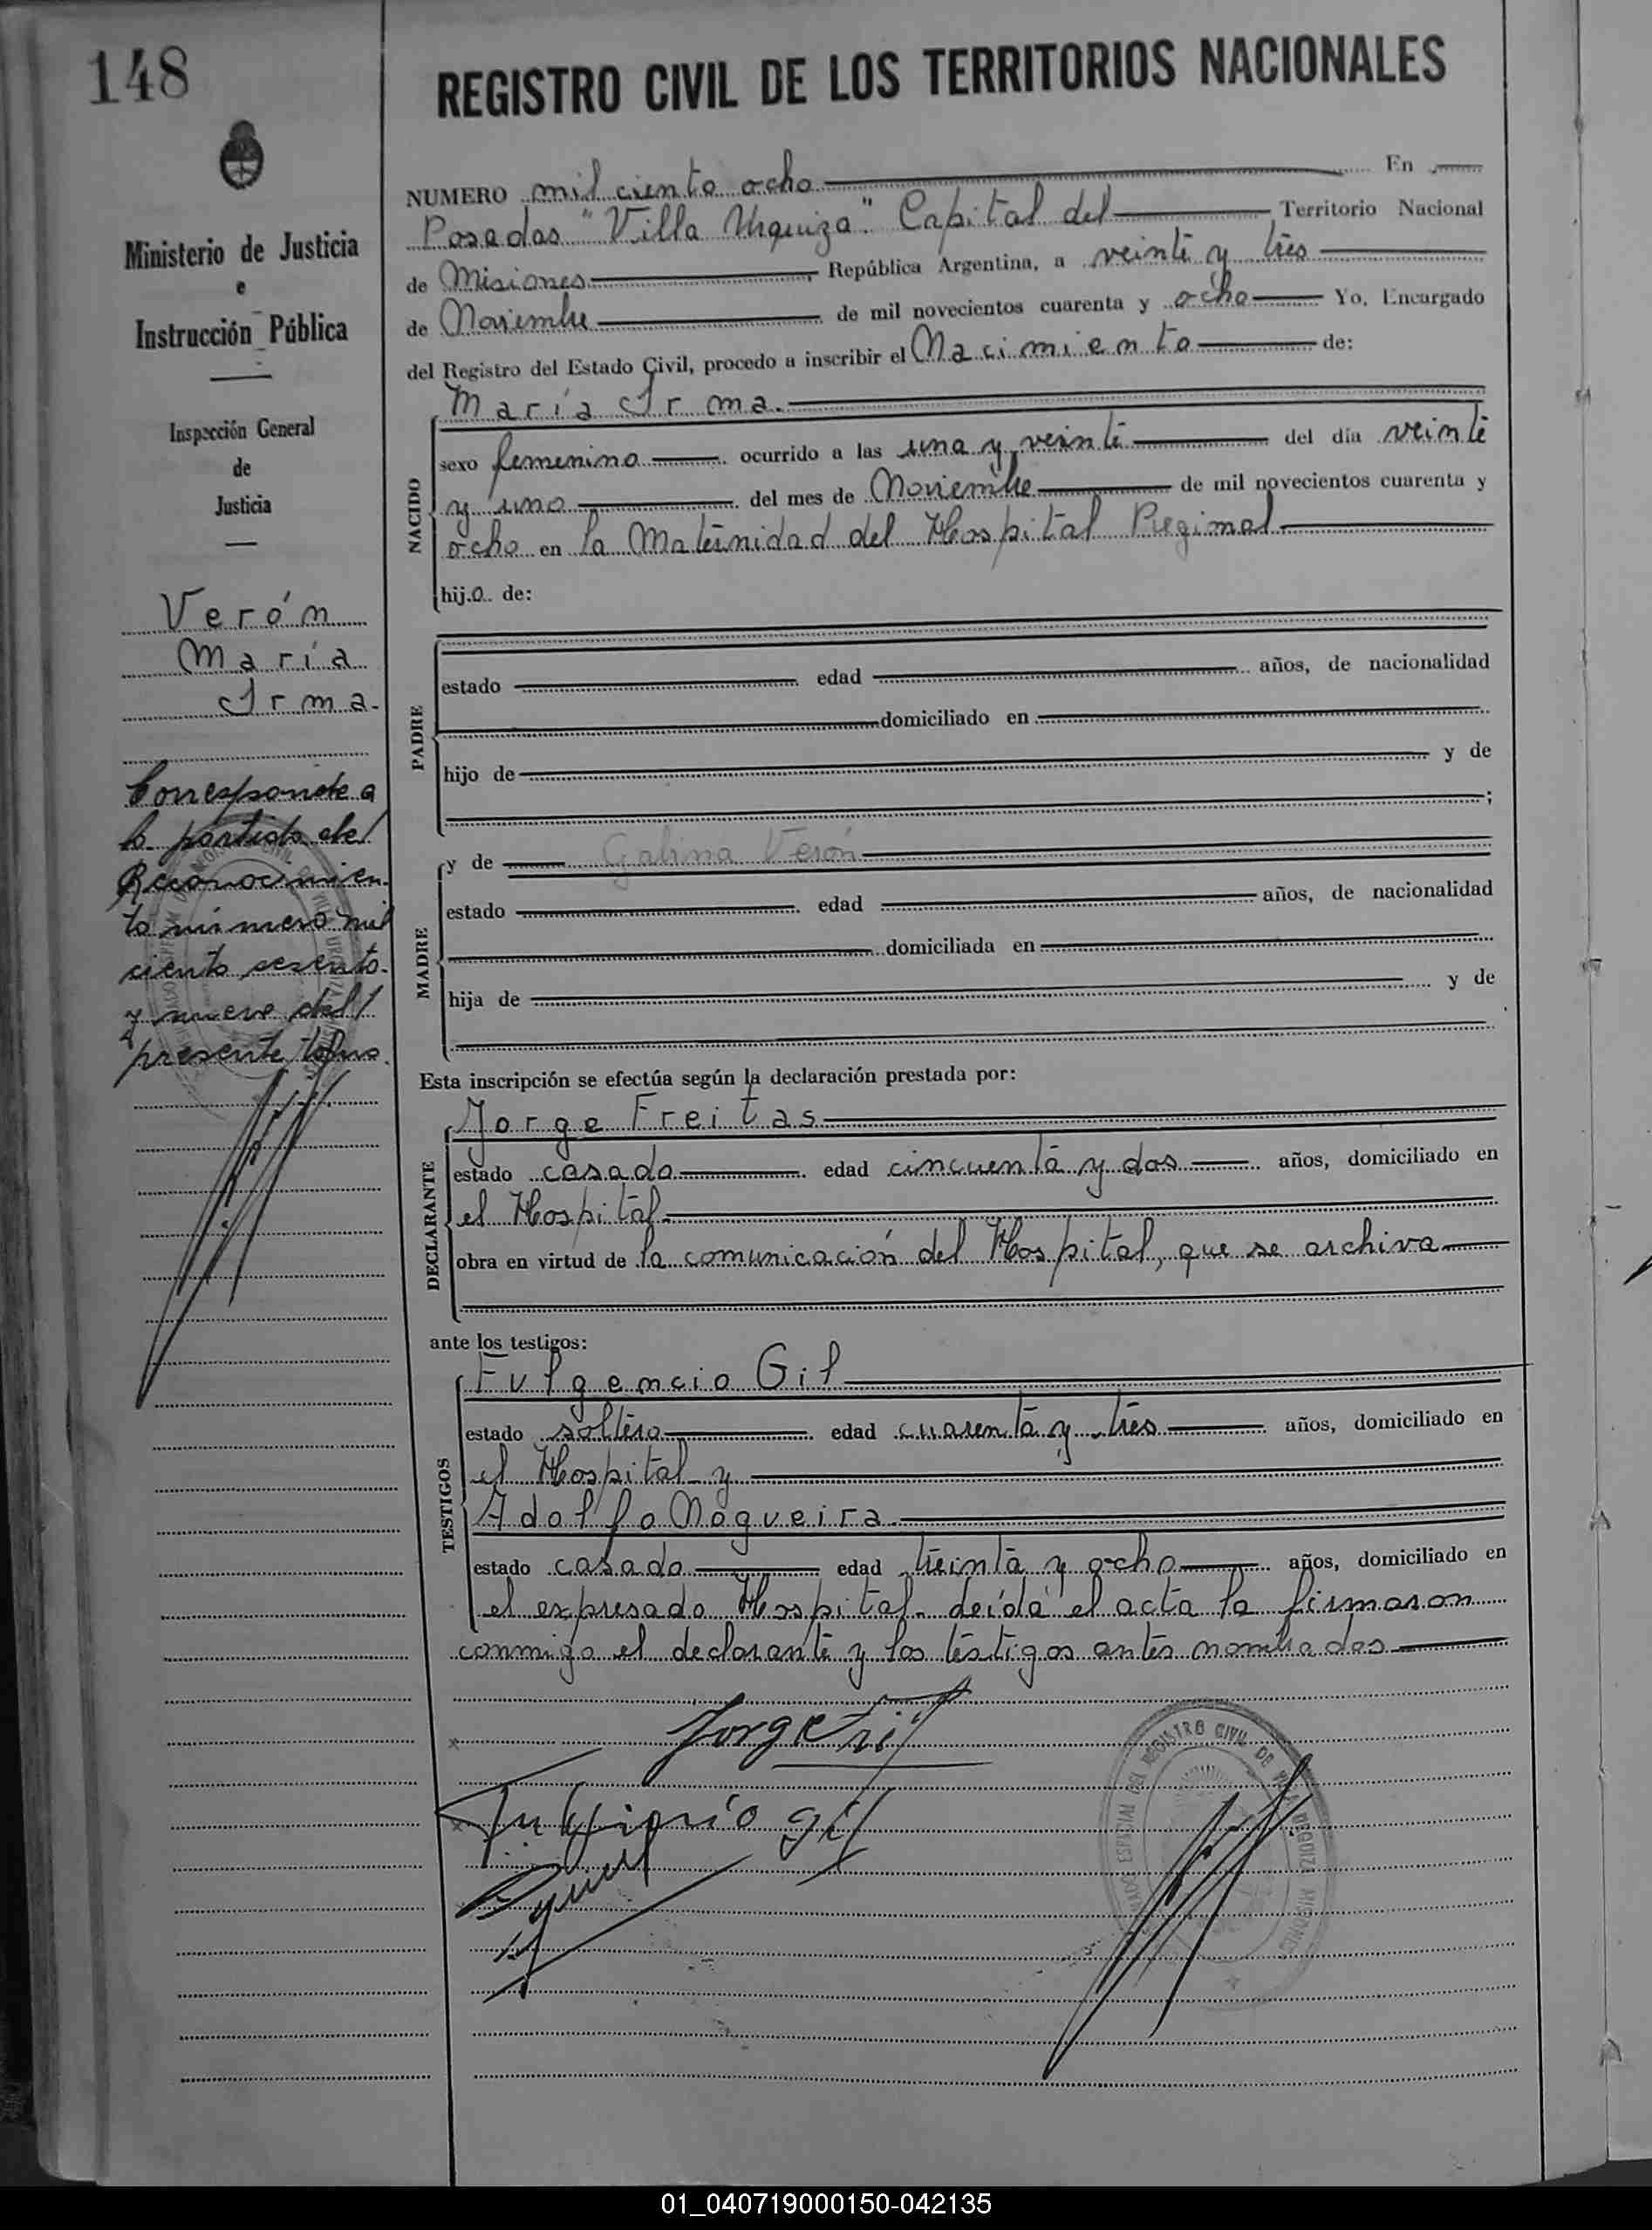 148
REGISTRO CIVIL DE LOS TERRITORIOS NACIONALES
Ministerio de Justicia
e
Instrucción Pública
Inspección General
de
Justicia
Verón
María
Irma.
Corresponde a
la partida del
Reconocimien-
to número mil
ciento sesenta
y nueve del
presente tomo.
NUMERO mil ciento ocho En
Posadas "Villa Urquiza". Capital del Territorio Nacional
de Misiones, República Argentina, a veinte y tres
de Noviembre de mil novecientos cuarenta y ocho Yo, Encargado
del Registro del Estado Civil, procedo a inscribir el Nacimiento de:
NACIDO
María Irma.
sexo femenino ocurrido a las una y veinte del día veinte
y uno del mes de Noviembre de mil novecientos cuarenta y
ocho en la Maternidad del Hospital Regional
hija de:
PADRE
estado edad años, de nacionalidad
domiciliado en
hijo de y de
;
MADRE
y de Gabina Verón
estado edad años, de nacionalidad
domiciliada en
hija de y de
Esta inscripción se efectúa según la declaración prestada por:
DECLARANTE
Jorge Freitas
estado casado edad cincuenta y dos años, domiciliado en
el Hospital
obra en virtud de la comunicación del Hospital, que se archiva
ante los testigos:
TESTIGOS
Fulgencio Gil
estado soltero edad cuarenta y tres años, domiciliado en
el Hospital y
Adolfo Nogueira
estado casado edad treinta y ocho años, domiciliado en
el expresado Hospital. Leída el acta la firmaron
conmigo el declarante y los testigos antes nombrados
Jorge
Fulgencio Gil
DEL REGISTRO CIVIL DE VILLA URQUIZA MISIONES
01_040719000150-042135